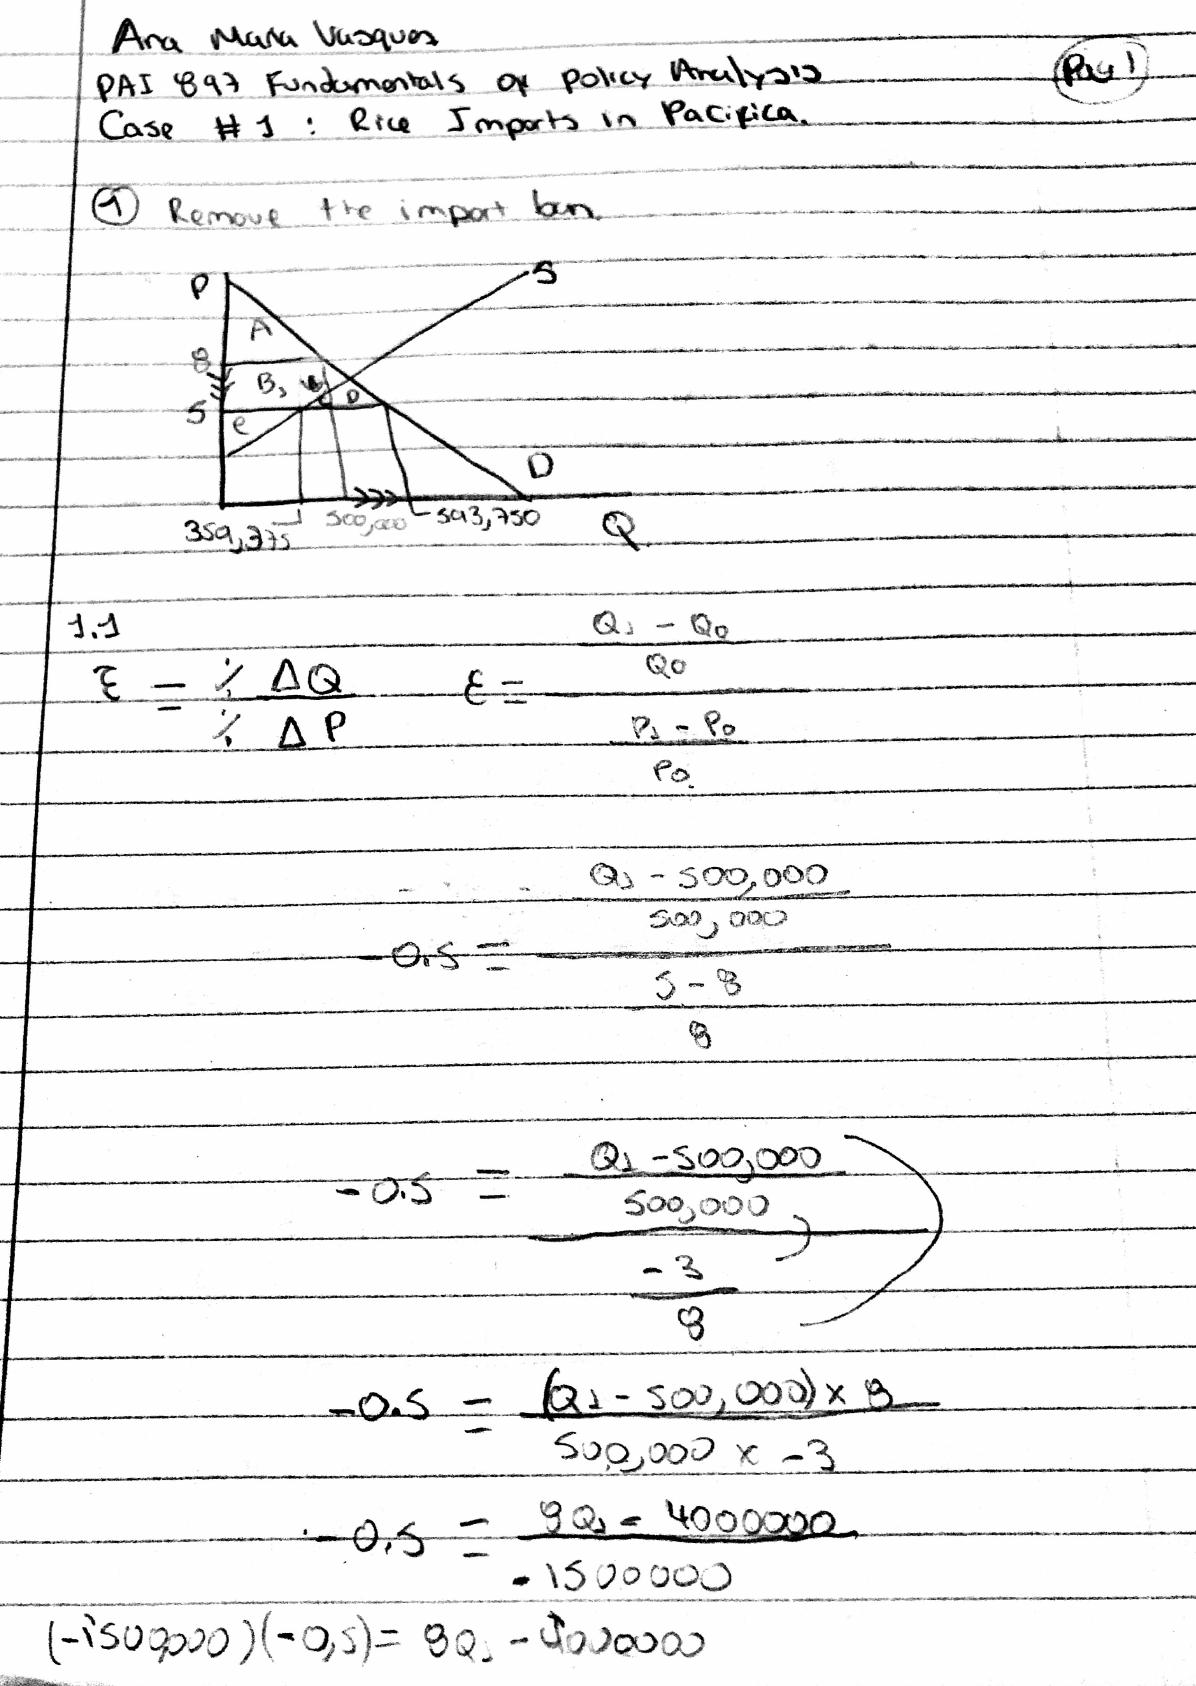 Ana Maria Vasquez
PAI 897 Fundamentals of Policy Analysis
Pag 1
Case # 1 : Rice Imports in Pacifica.
① Remove the import ban.
P
S
A
8
B
D
5
e
D
359,375
500,000
593,750
Q
1.1
Q1 - Q0
Q0
ε = % ΔQ
% ΔP
ε =
P1 - P0
P0
Q1 - 500,000
500,000
-0.5 =
5 - 8
8
Q1 - 500,000
-0.5 =
500,000
-3
8
-0.5 = (Q1 - 500,000) x 8
500,000 x -3
-0.5 = 8Q1 - 4000000
-1500000
(-1500,000)(-0,5) = 8Q1 - 4000000